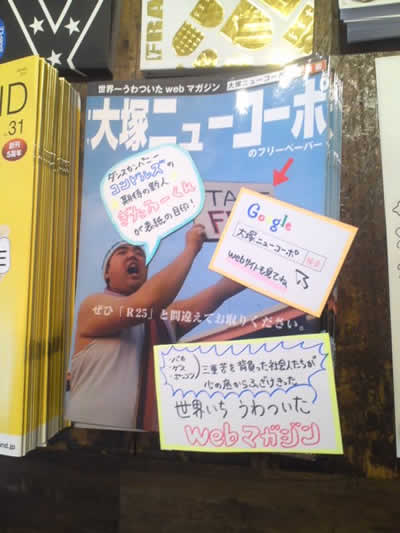 世界一うわついた web マガジン
大塚ニューコーポ
大塚ニューコーポ
のフリーペーパー
ダンスカンパニー
コンドルズの
期待の野人
が表紙の目印!
TAKE
Google
大塚ニューコーポ
検索
webサイトも見てね
ぜひ「R25」と間違えてお取りください。
バカ
ゲス
ポンコツ
三重苦を背負った社会人たちが
心の底からふざけきった
世界いち うわついた
webマガジン
ND
.31
創刊
5周年
nd.jp
FRA